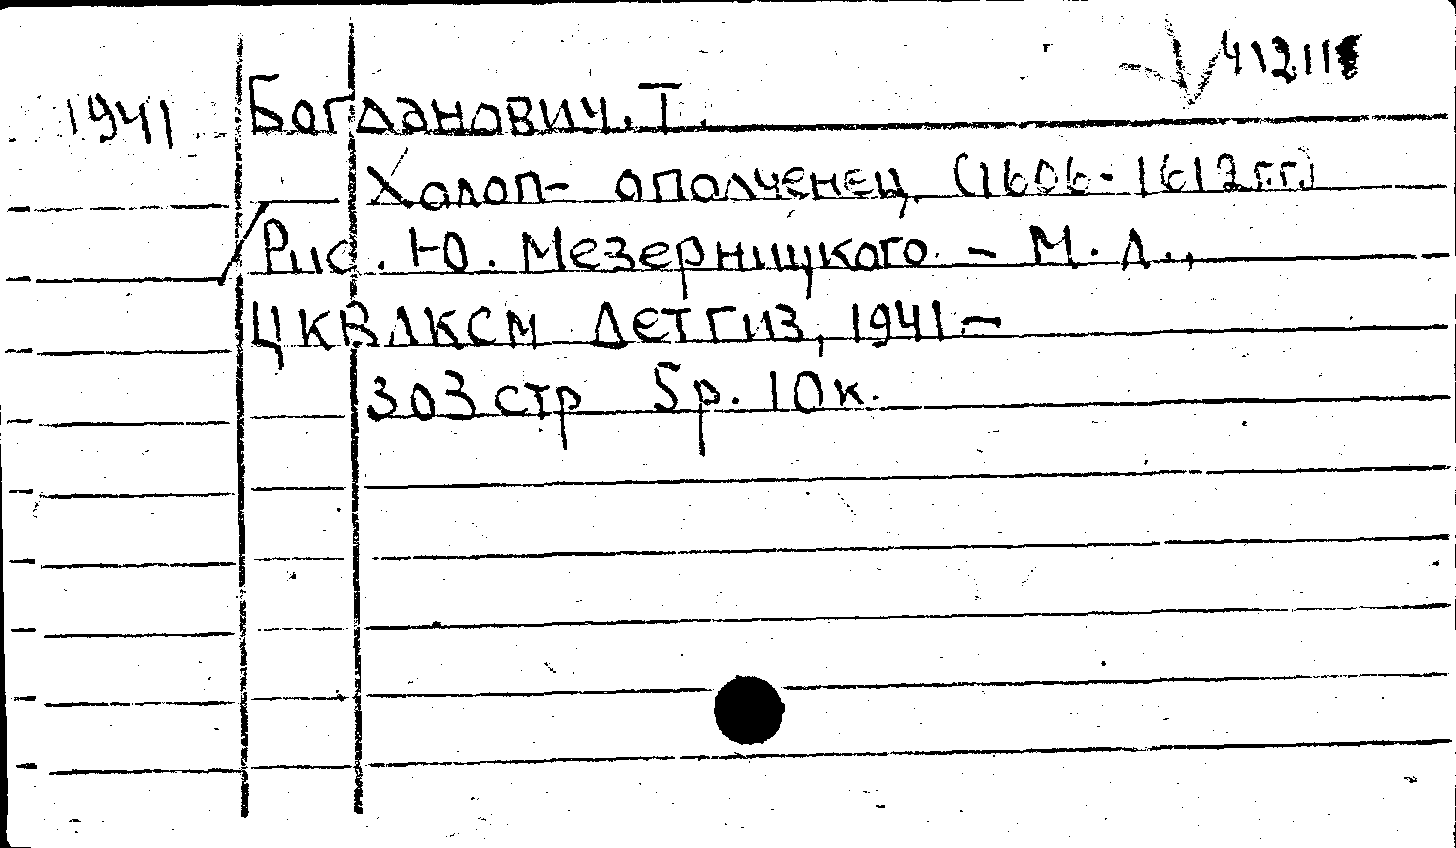 1941 Богданович. Т.
Холоп- ополченец. (1606-1612 г.г.)
Рис. Ю. Мезерницкого. - М. Л.,
ЦКВЛКСМ Детгиз, 1941 -
303 стр 5 р. 10 к.